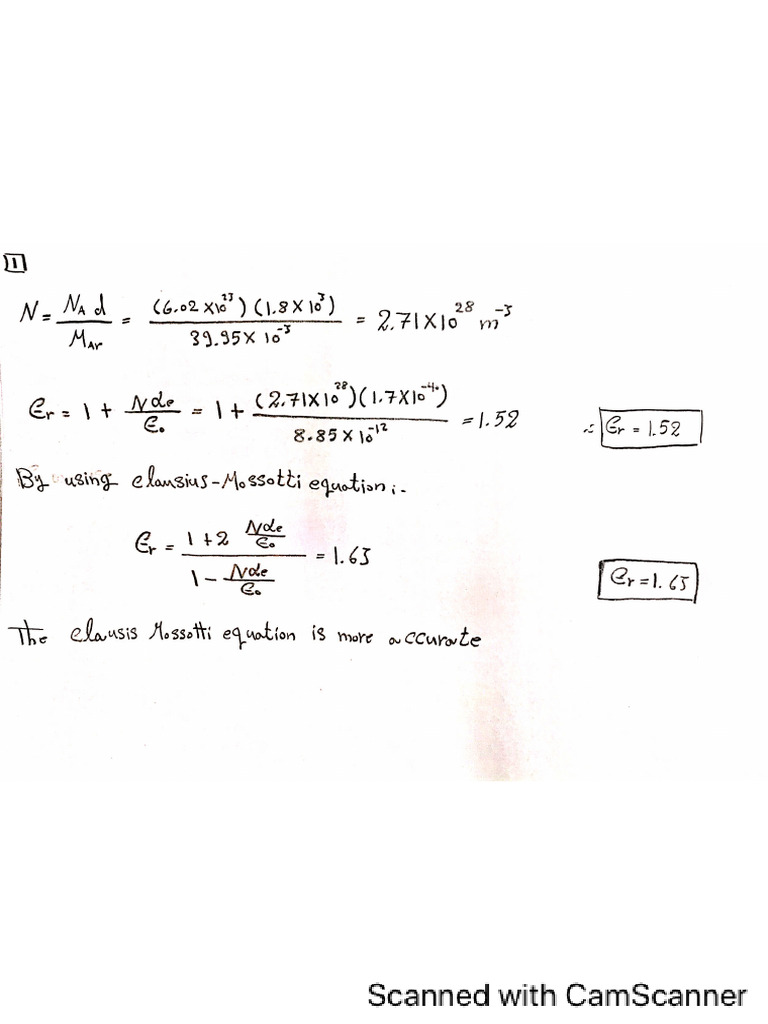 1
N = N_A d / M_Ar = (6.02 × 10^23) (1.8 × 10^3) / 39.95 × 10^-3 = 2.71 × 10^28 m^-3
Er = 1 + N αe / ε0 = 1 + (2.71 × 10^28)(1.7 × 10^-40) / 8.85 × 10^-12 = 1.52 ∴ Er = 1.52
By using clausius-Mossotti equation:-
Er = (1 + 2 Nαe/ε0) / (1 - Nαe/ε0) = 1.63 Er = 1.63
The clausis Mossotti equation is more accurate
Scanned with CamScanner